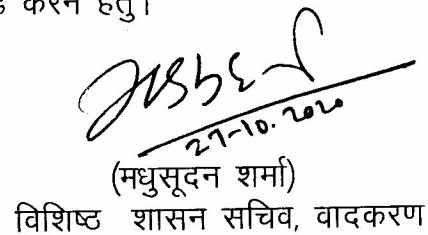 करने हेतु।
27-10.2020
(मधुसूदन शर्मा)
विशिष्ठ शासन सचिव, वादकरण